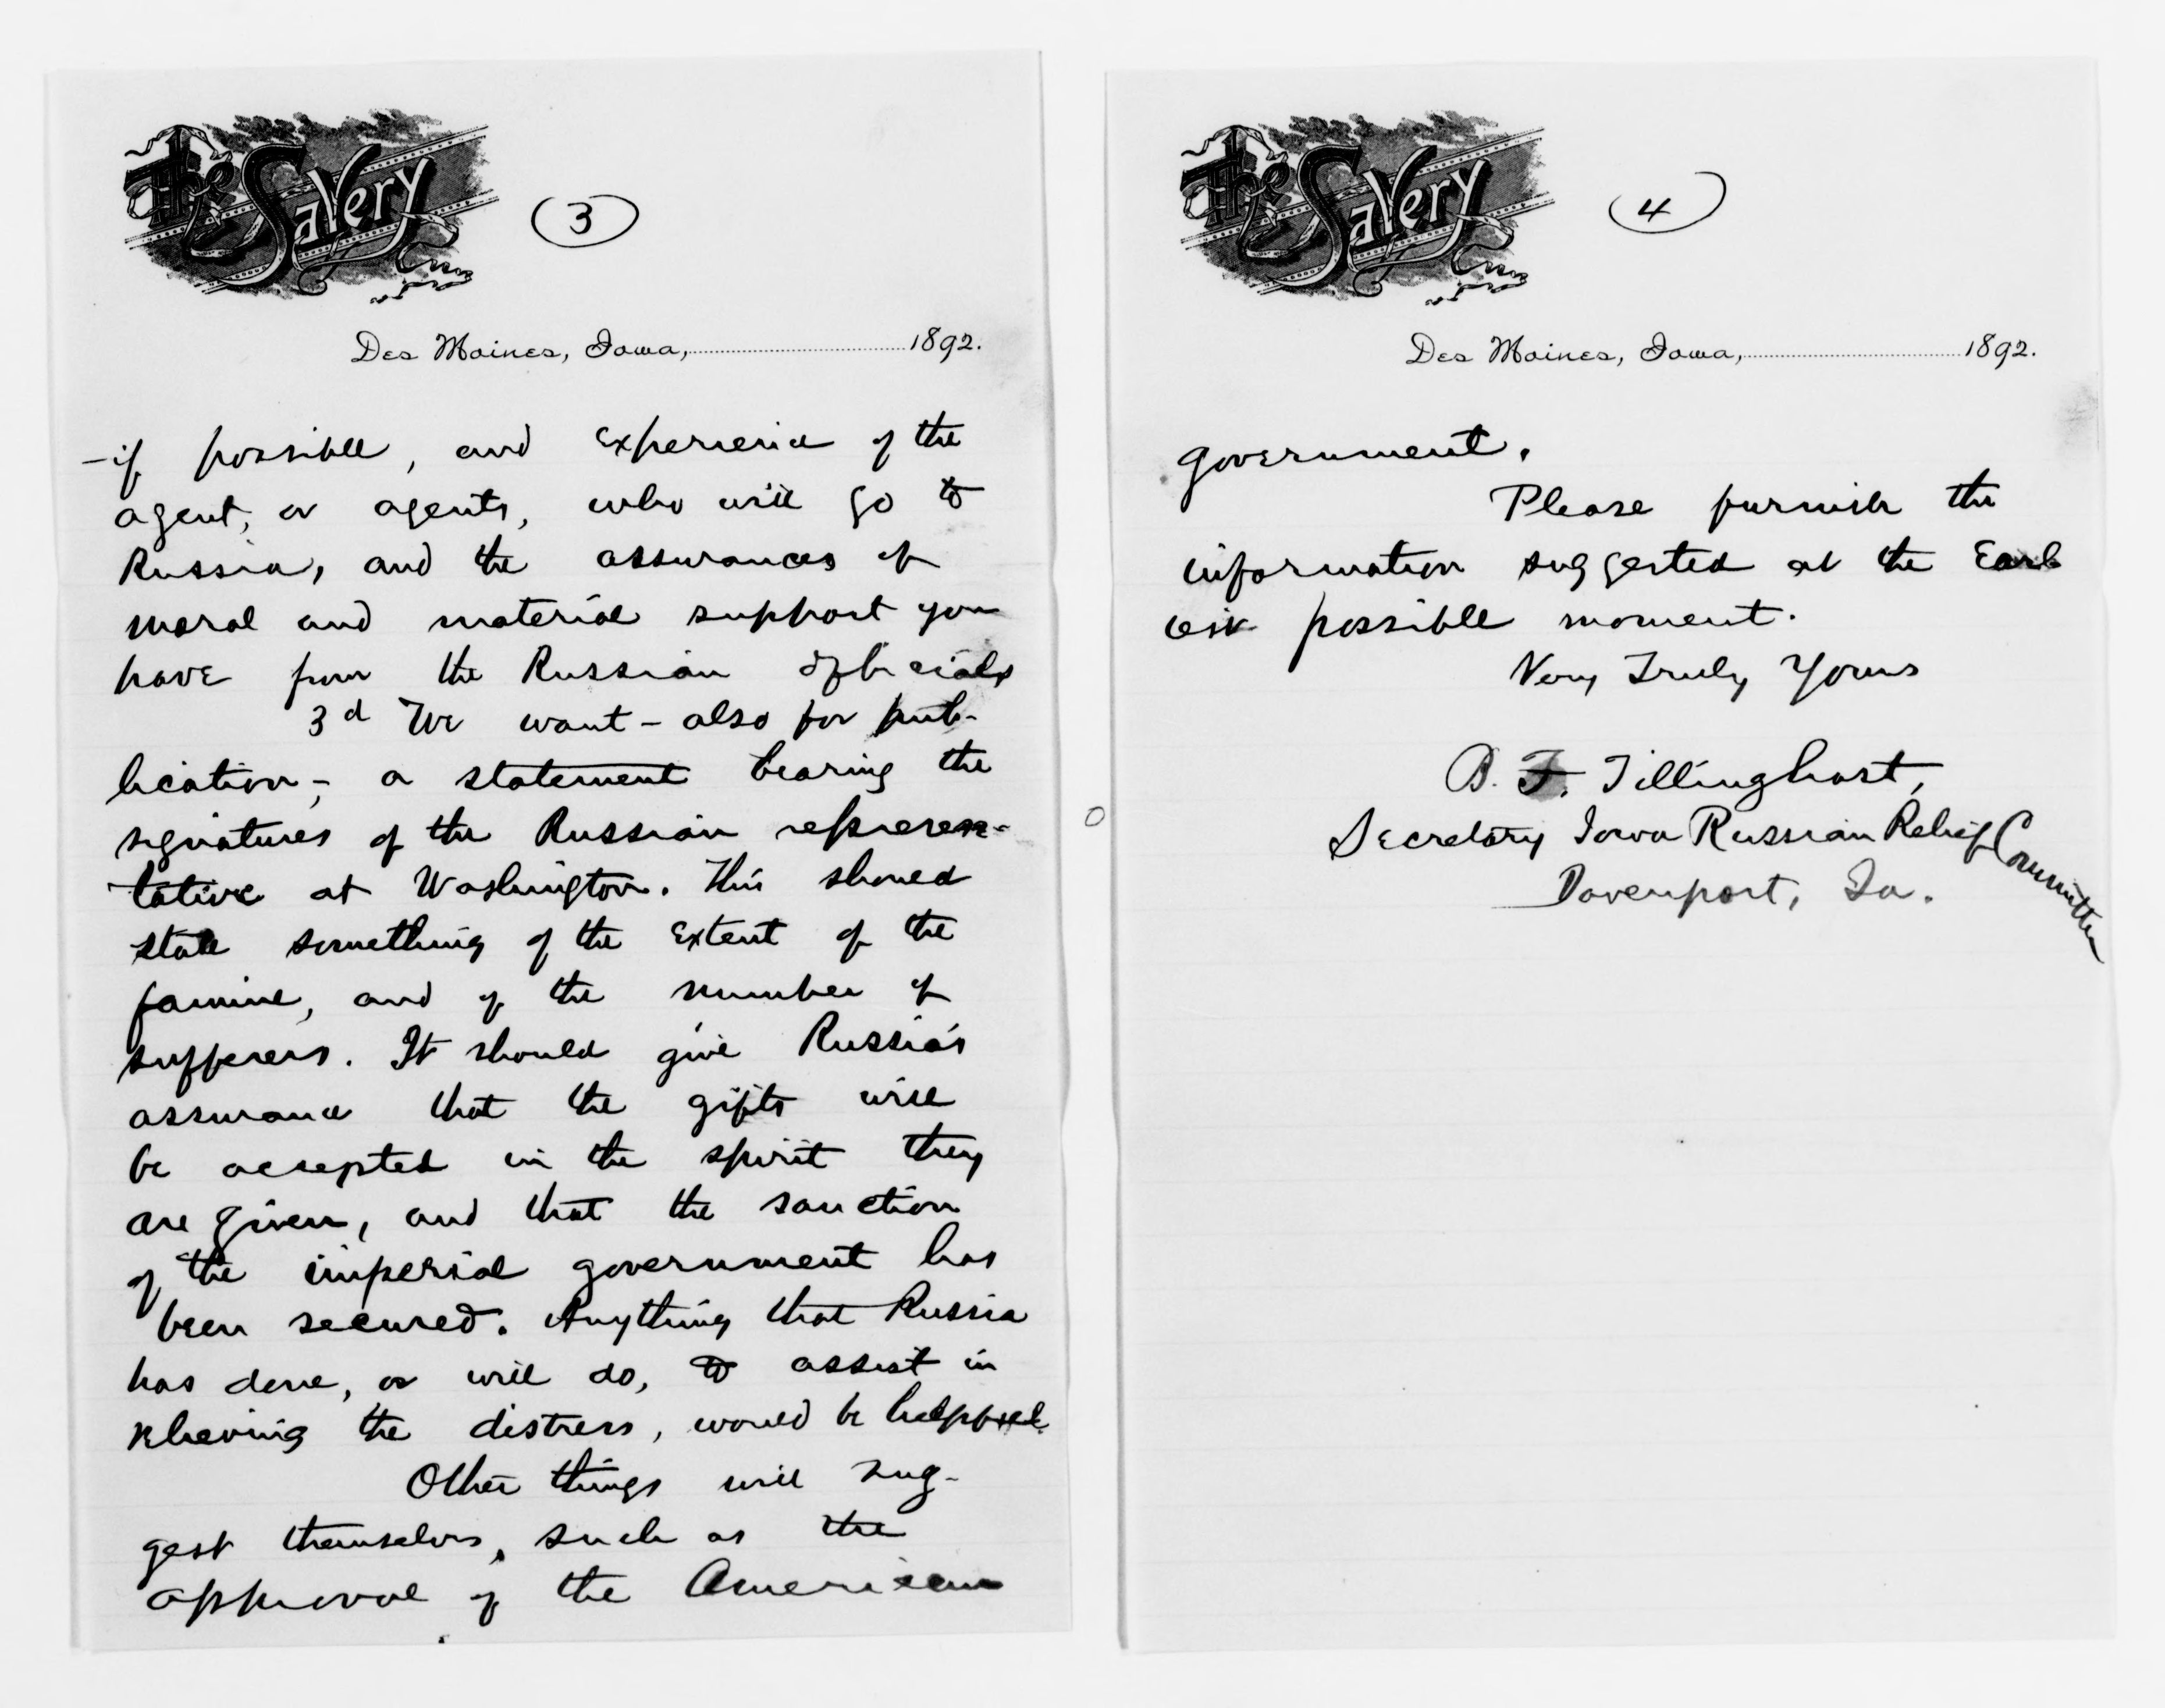 The Savery
3
Des Moines, Iowa, 1892.
- if possible, and experience of the
agent, or agents, who will go to
Russia, and the assurances of
moral and material support you
have from the Russian officials
3d We want - also for pub-
lication, - a statement bearing the
signatures of the Russian represen-
tative at Washington. This should
state something of the extent of the
famine, and of the number of
sufferers. It should give Russia's
assurance that the gifts will
be accepted in the spirit they
are given, and that the sanction
of the imperial government has
been secured. Anything that Russia
has done, or will do, to assist in
relieving the distress, would be helpful.
Other things will sug-
gest themselves, such as the
approval of the American
The Savery
4
Des Moines, Iowa, 1892.
government.
Please furnish the
information suggested at the earl-
iest possible moment.
Very Truly Yours
B. F. Tillinghast,
Secretary Iowa Russian Relief Committee
Davenport, Ia.